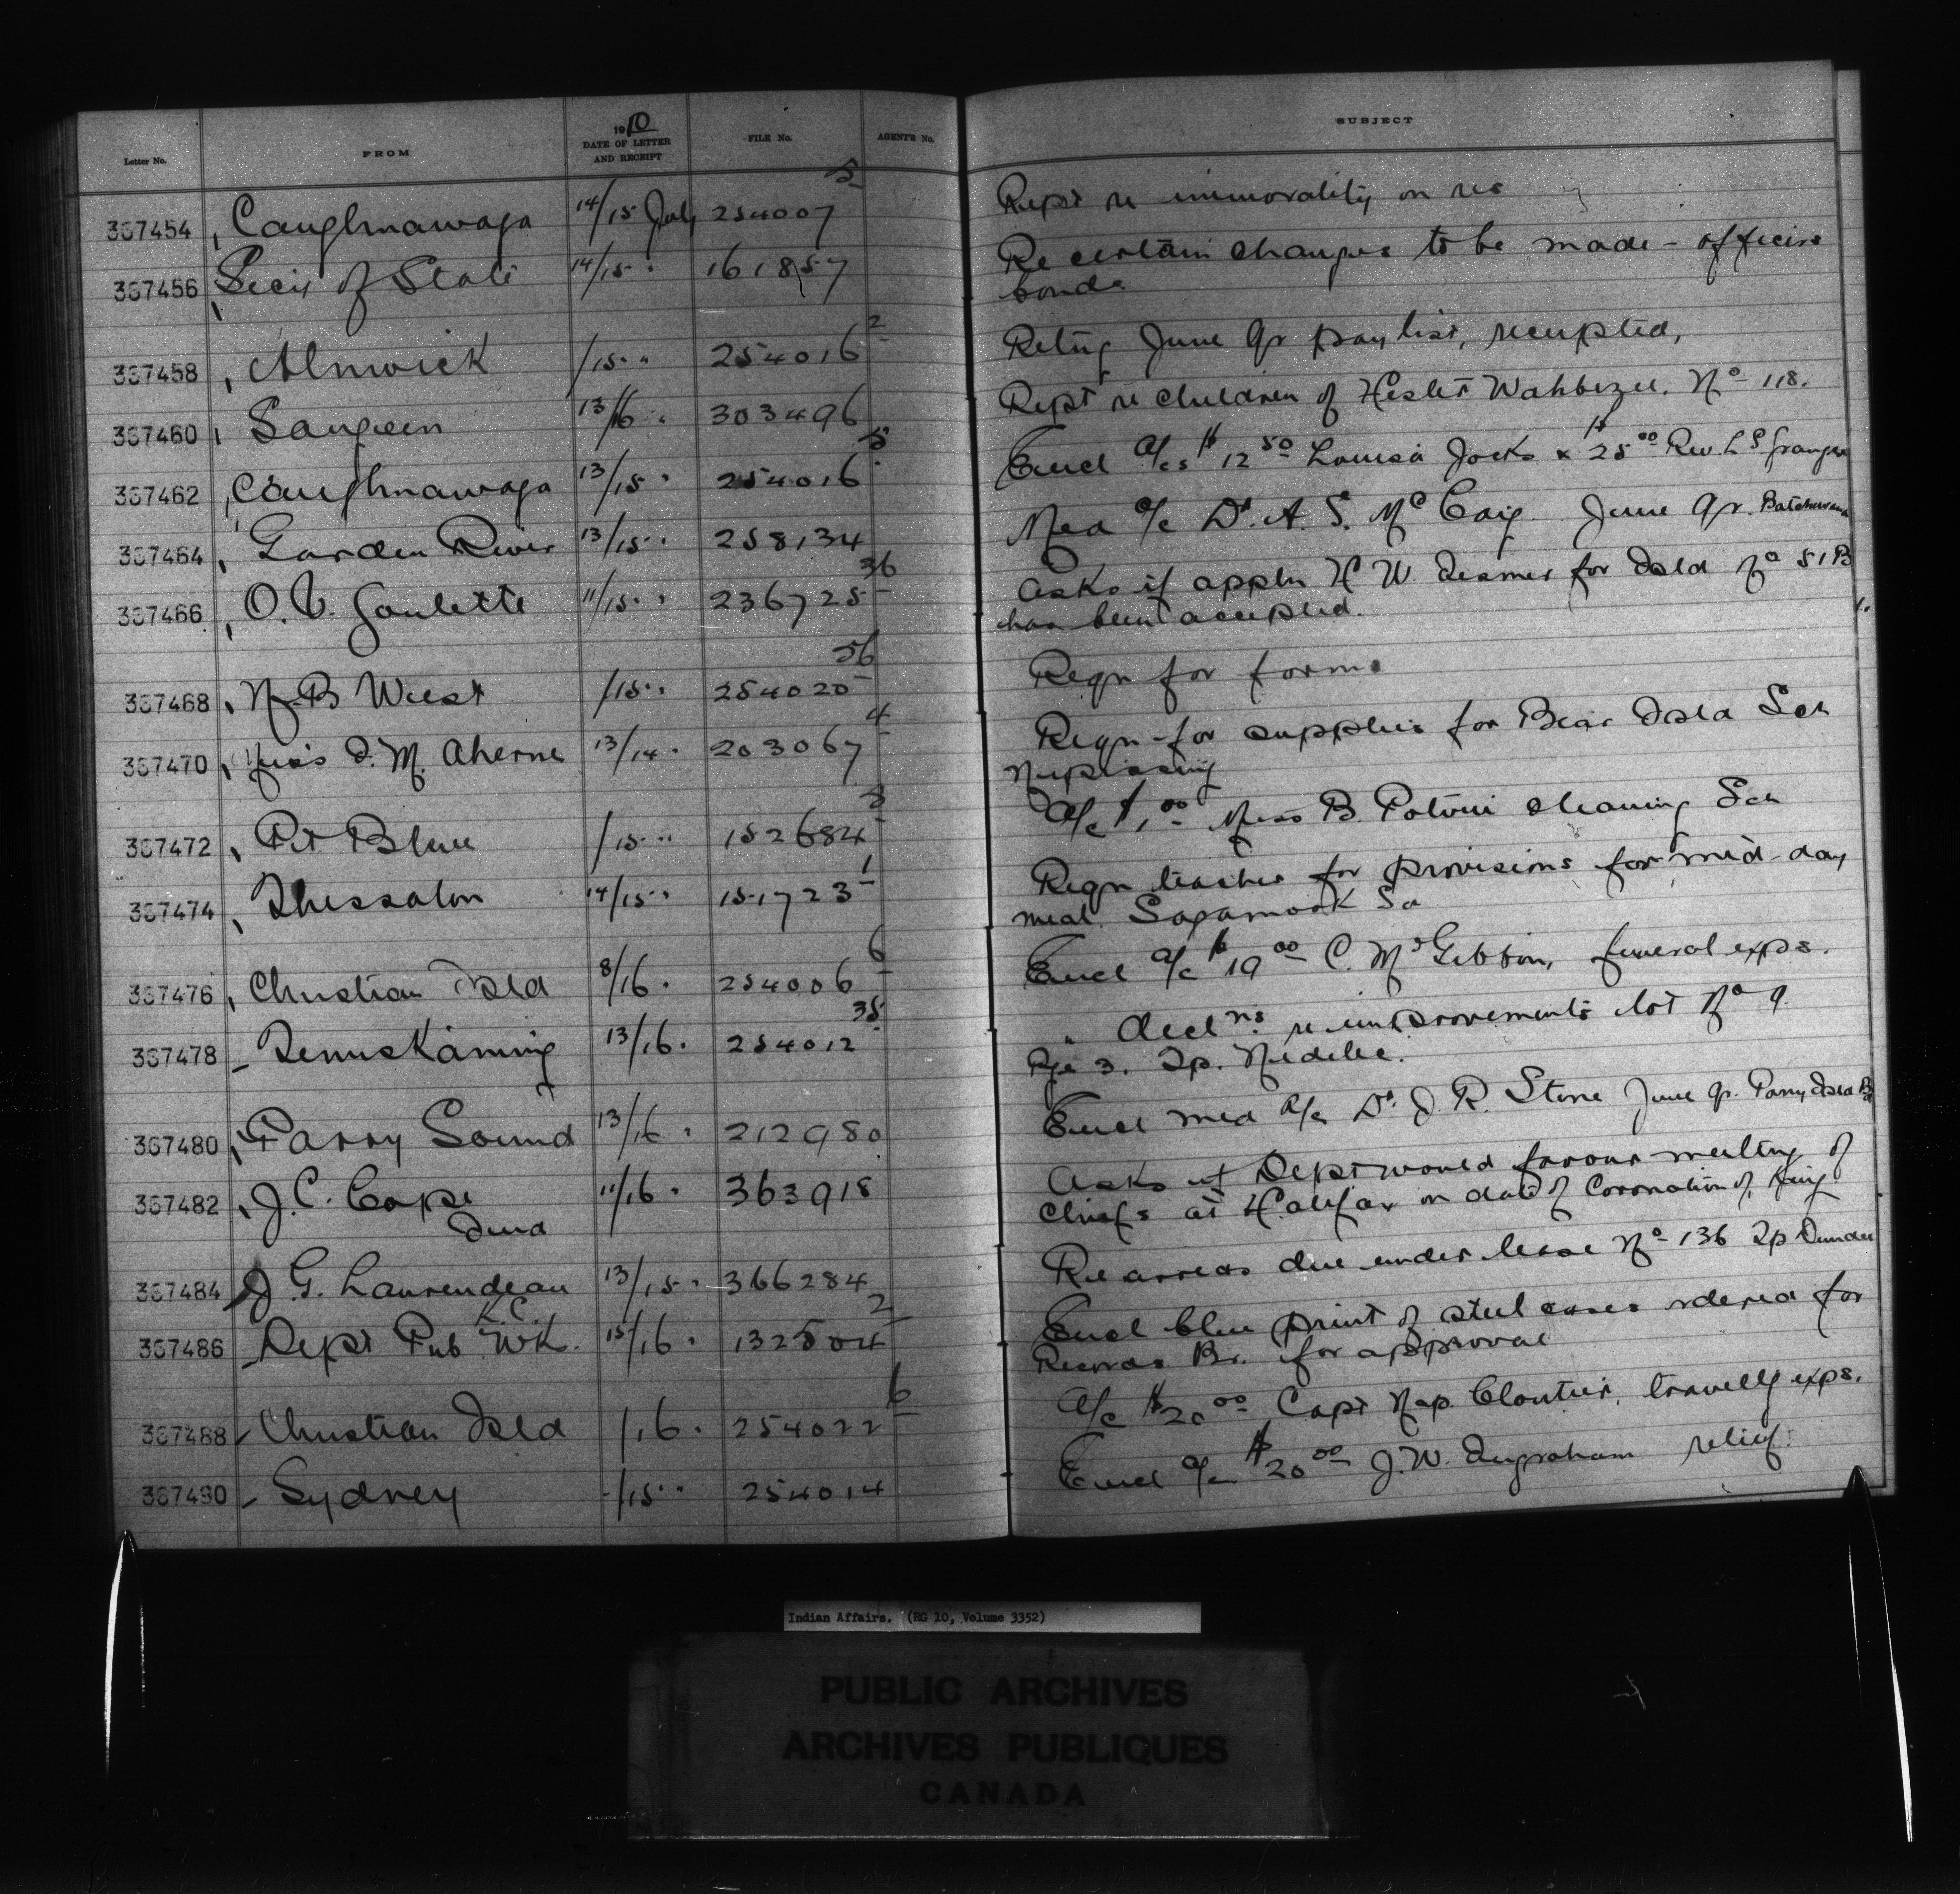 Letter No. FROM 1910 DATE OF LETTER AND RECEIPT FILE No. AGENT'S No. SUBJECT
367454 Caughnawaga 14/15 July 254007 5 Rept re immorality on res
367456 Secy of State 14/15 " 161857 Re certain changes to be made - officers
bonds
367458 Alnwick /15 " 254016 2 Retng June qr paylist, receipted,
367460 Saugeen 13/16 " 303496 Rept re children of Hester Wahbezee. No 118.
367462 Caughnawaga 13/15 " 254016 5 Encl a/cs $12.50 Louisa Jocks & $25.00 Rev. L S Granger
367464 Garden River 13/15 " 258134 Med a/c Dr. A. S. McCaig June qr. Batchewana
367466 O. V. Goulette 11/15 " 236725 36 Asks if appln H W. Desmer for Isld No 51B
has been accepted.
367468 N-B West /15 " 254020 56 Reqn for forms
367470 Miss I. M. Aherne 13/14 " 203067 4 Reqn for supplies for Bear Isld Sch
Nipissing
367472 Pt Blue /15 " 152684 3 A/c $1.00 Miss B. Potvin cleaning Sch
367474 Thessalon 14/15 " 151723 1 Reqn teacher for provisions for mid-day
meal Sagamook Sc
367476 Christian Isld 8/16 " 254006 6 Encl a/c $19.00 C. McGibbon, funeral exps.
367478 Temiskaming 13/16 " 254012 35 " Decl ns. re improvements lot No 9.
Rge 3. Tp. Nedelec.
367480 Parry Sound 13/16 " 212980 Encl med a/c Dr. J. R. Stone June qr. Parry Isld Bd
367482 J. C. Cope 11/16 " 363918 Asks if Dept would favour meeting of
Indn chiefs at Halifax on date of Coronation of King
367484 J. G. Laurendeau K.C. 13/15 " 366284 Re arrears due under lease No 136 Tp Dundee
367486 Dept Pub Wk. 15/16 " 132504 2 Encl blue print of steel cases ordered for
Records Br. for approval
367488 Christian Isld /16 " 254022 6 A/c $20.00 Capt Nap. Cloutier, travellg exps.
367490 Sydney /15 " 254014 Encl a/c $20.00 J. W. Ingraham relief.
Indian Affairs. (RG 10, Volume 3352)
PUBLIC ARCHIVES
ARCHIVES PUBLIQUES
CANADA